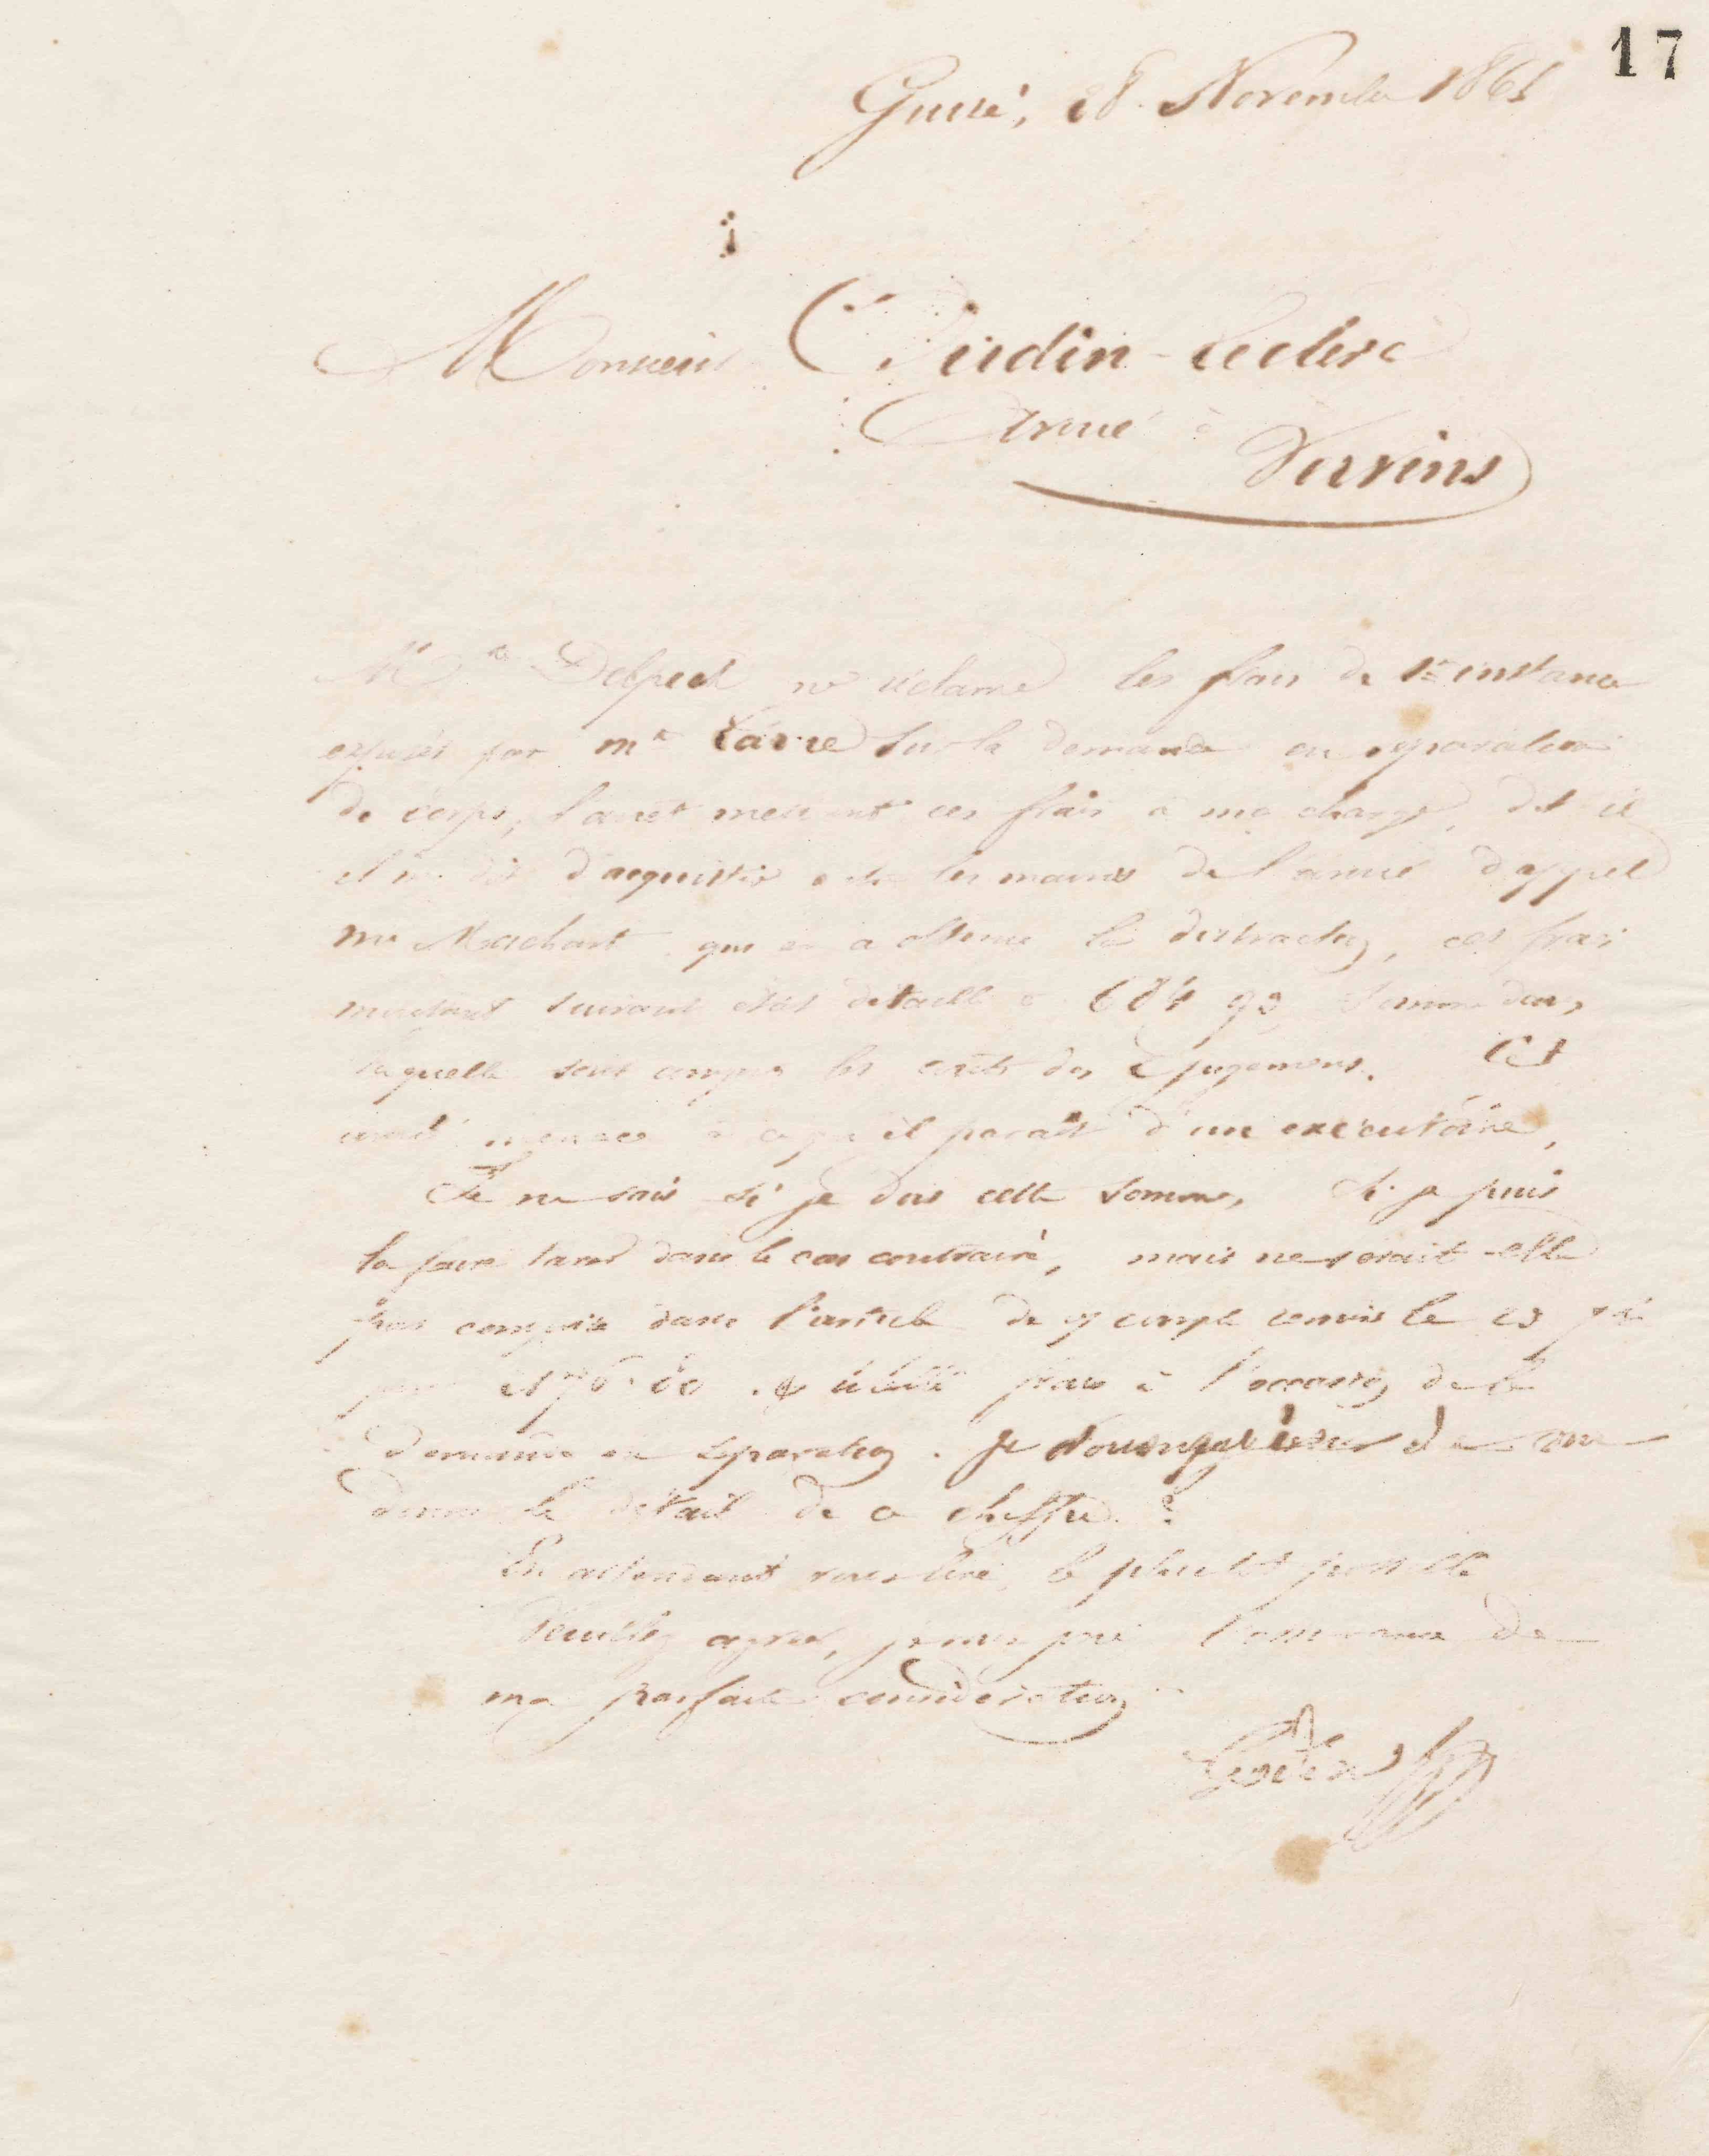 17
Guise, 28 Novembre 1865
Monsieur Oudin-Leclerc
Avoué à
Vervins
Me Delpech me réclame les frais de 1re instance
exposés par me Larue sur la demande en séparation
de corps, l'arrêt mettant ces frais à ma charge, dit il
il me dit d'acquitter entre les mains de l'avoué d'appel
me Machart qui en a obtenu la distraction, ces frais
montant suivant état détaillé à 92 somme dans
laquelle sont compris les coûts des 2 jugements. Cet
avoué menace à ce qu'il paraît d'un exécutoire,
Je ne sais si je dois cette somme, si je puis
la faire taxer dans le cas contraire, mais ne serait-elle
pas comprise dans l'article de compte remis le
pour frais à l'occasion de la
demande en séparation. Je de me
donner le détail de ce chiffre ?
En attendant vous lire, le plus tôt possible
Veuillez agréer, je vous prie l'assurance de
ma parfaite considération
Godin